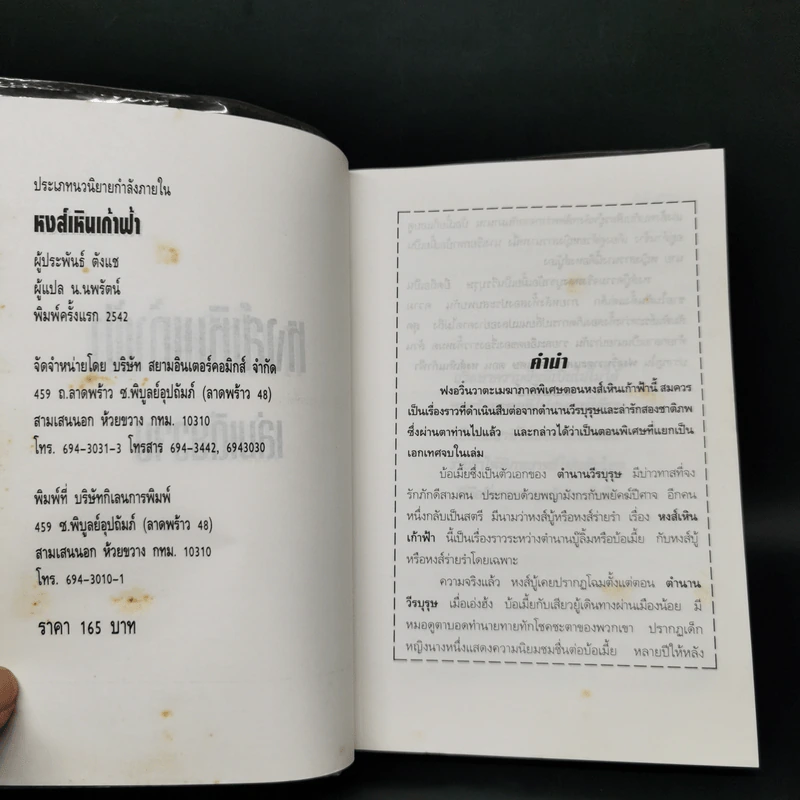 ประเภทนวนิยายกำลังภายใน
หงส์เหินเก้าฟ้า
ผู้ประพันธ์ ตังแซ
ผู้แปล น.นพรัตน์
พิมพ์ครั้งแรก 2542
จัดจำหน่ายโดย บริษัท สยามอินเตอร์คอมิกส์ จำกัด
459 ถ.ลาดพร้าว ซ.พิบูลย์อุปถัมภ์ (ลาดพร้าว 48)
สามเสนนอก ห้วยขวาง กทม. 10310
โทร. 694-3031-3 โทรสาร 694-3442, 6943030
พิมพ์ที่ บริษัทกิเลนการพิมพ์
459 ซ.พิบูลย์อุปถัมภ์ (ลาดพร้าว 48)
สามเสนนอก ห้วยขวาง กทม. 10310
โทร. 694-3010-1
ราคา 165 บาท
คำนำ
ฟงอวิ๋นวาตะเมฆาภาคพิเศษตอนหงส์เหินเก้าฟ้านี้ สมควร
เป็นเรื่องราวที่ดำเนินสืบต่อจากตำนานวีรบุรุษและล่ารักสองชาติภพ
ซึ่งผ่านตาท่านไปแล้ว และกล่าวได้ว่าเป็นตอนพิเศษที่แยกเป็น
เอกเทศจบในเล่ม
บ้อเมี้ยซึ่งเป็นตัวเอกของ ตำนานวีรบุรุษ มีบ่าวทาสที่จง
รักภักดีสามคน ประกอบด้วยพญามังกรกับพยัคฆ์ปีศาจ อีกคน
หนึ่งกลับเป็นสตรี มีนามว่าหงส์บู๊หรือหงส์ร่ายรำ เรื่อง หงส์เหิน
เก้าฟ้า นี้เป็นเรื่องราวระหว่างตำนานบู๊ลิ้มหรือบ้อเมี้ย กับหงส์บู๊
หรือหงส์ร่ายรำโดยเฉพาะ
ความจริงแล้ว หงส์บู๊เคยปรากฏโฉมตั้งแต่ตอน ตำนาน
วีรบุรุษ เมื่อเอ่งฮ้ง บ้อเมี้ยกับเสียวยู้เดินทางผ่านเมืองน้อย มี
หมอดูตาบอดทำนายทายทักโชคชะตาของพวกเขา ปรากฏเด็ก
หญิงนางหนึ่งแสดงความนิยมชมชื่นต่อบ้อเมี้ย หลายปีให้หลัง